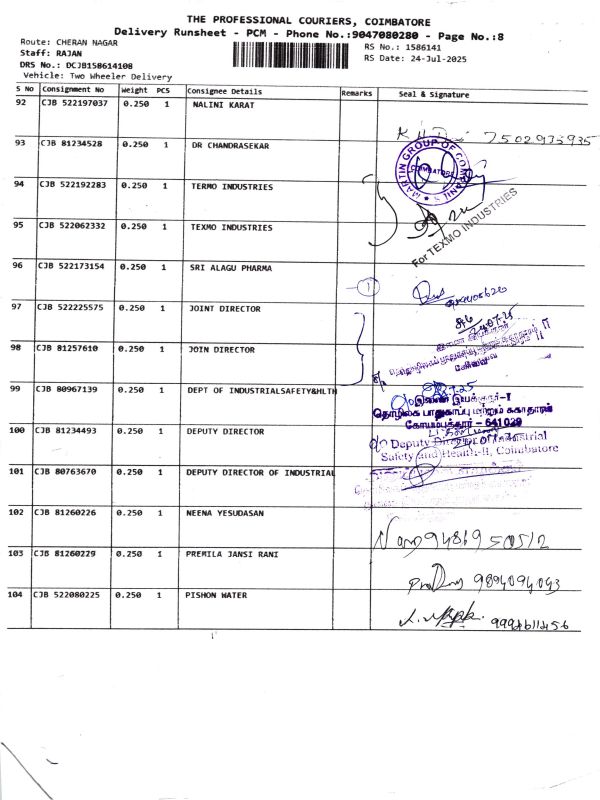 THE PROFESSIONAL COURIERS, COIMBATORE
Delivery Runsheet - PCM - Phone No.:9047080280 - Page No.:8
Route: CHERAN NAGAR
RS No.: 1586141
Staff: RAJAN
RS Date: 24-Jul-2025
DRS No.: DCJB158614108
Vehicle: Two Wheeler Delivery
S No Consignment No Weight PCS Consignee Details Remarks Seal & Signature
92 CJB 522197037 0.250 1 NALINI KARAT
7502935935
93 CJB 81234528 0.250 1 DR CHANDRASEKAR
MARTIN GROUP OF COMPANIES
COIMBATORE
94 CJB 522192283 0.250 1 TERMO INDUSTRIES
95 CJB 522062332 0.250 1 TEXMO INDUSTRIES
For TEXMO INDUSTRIES
96 CJB 522173154 0.250 1 SRI ALAGU PHARMA
1
97 CJB 522225575 0.250 1 JOINT DIRECTOR
98 CJB 81257610 0.250 1 JOIN DIRECTOR
கோவை
99 CJB 80967139 0.250 1 DEPT OF INDUSTRIALSAFETY&HLTH
இணை இயக்குநர்-I
தொழிலக பாதுகாப்பு மற்றும் சுகாதாரம்
கோயம்புத்தூர் - 641029
100 CJB 81234493 0.250 1 DEPUTY DIRECTOR
Deputy Director of Industrial
Safety and Health-II, Coimbatore
101 CJB 80763670 0.250 1 DEPUTY DIRECTOR OF INDUSTRIAL
102 CJB 81260226 0.250 1 NEENA YESUDASAN
9486950512
103 CJB 81260229 0.250 1 PREMILA JANSI RANI
9894094043
104 CJB 522080225 0.250 1 PISHON WATER